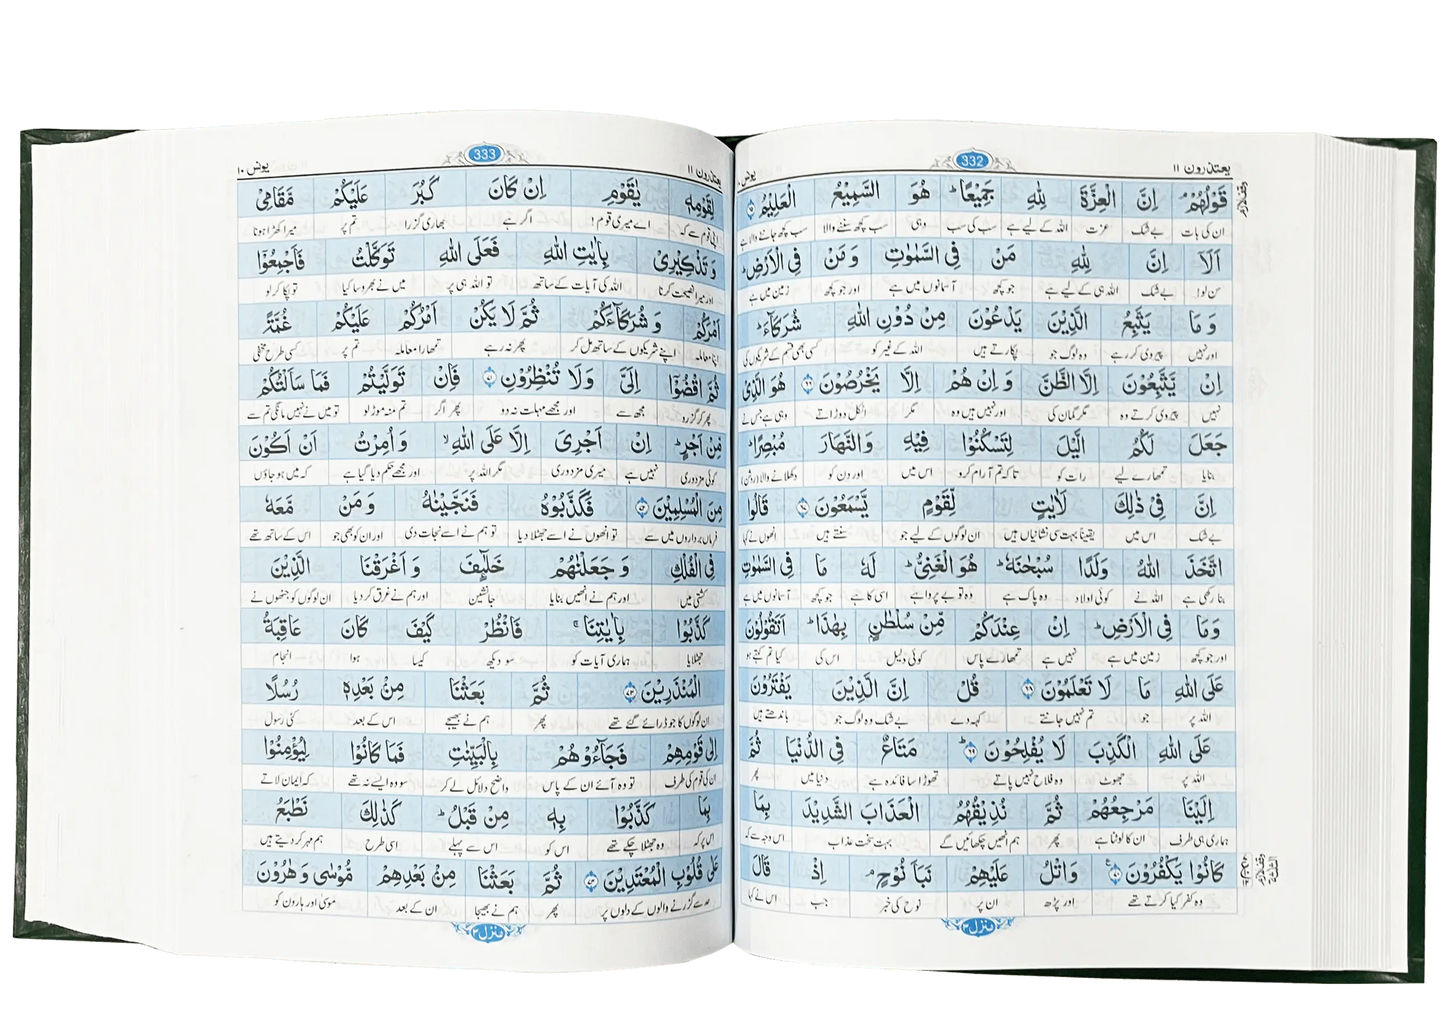 يعتذرون ۱۱ 332 يونس ۱۰
قَوْلُهُمْ اِنَّ الْعِزَّةَ لِلّٰهِ جَمِيْعًا ؕ هُوَ السَّمِيْعُ الْعَلِيْمُ ۶۵
ان کی بات بے شک عزت اللہ کے لیے ہے سب کی سب وہی سب کچھ سننے والا سب کچھ جاننے والا ہے
اَلَاۤ اِنَّ لِلّٰهِ مَنْ فِى السَّمٰوٰتِ وَ مَنْ فِى الْاَرْضِ ؕ
سن لو! بے شک اللہ ہی کے لیے ہے جو کچھ آسمانوں میں ہے اور جو کچھ زمین میں ہے
وَ مَا يَتَّبِعُ الَّذِيْنَ يَدْعُوْنَ مِنْ دُوْنِ اللّٰهِ شُرَكَآءَ ؕ
اور نہیں پیروی کر رہے وہ لوگ جو پکارتے ہیں اللہ کے غیر کو کسی بھی قسم کے شریکوں کی
اِنْ يَّتَّبِعُوْنَ اِلَّا الظَّنَّ وَ اِنْ هُمْ اِلَّا يَخْرُصُوْنَ ۶۶ هُوَ الَّذِىْ
نہیں پیروی کرتے وہ مگر گمان کی اور نہیں ہیں وہ مگر اٹکل دوڑاتے وہی ہے جس نے
جَعَلَ لَكُمُ الَّيْلَ لِتَسْكُنُوْا فِيْهِ وَالنَّهَارَ مُبْصِرًا ؕ
بنایا تمھارے لیے رات کو تاکہ تم آرام کرو اس میں اور دن کو دکھلانے والا (روشن)
اِنَّ فِىْ ذٰلِكَ لَاٰيٰتٍ لِّقَوْمٍ يَّسْمَعُوْنَ ۶۷ قَالُوا
بے شک اس میں یقیناً بہت سی نشانیاں ہیں ان لوگوں کے لیے جو سنتے ہیں انھوں نے کہا
اتَّخَذَ اللّٰهُ وَلَدًا سُبْحٰنَهٗ ؕ هُوَ الْغَنِىُّ ؕ لَهٗ مَا فِى السَّمٰوٰتِ
بنا رکھی ہے اللہ نے کوئی اولاد وہ پاک ہے وہ تو بے پروا ہے اسی کا ہے جو کچھ آسمانوں میں ہے
وَمَا فِى الْاَرْضِ ؕ اِنْ عِنْدَكُمْ مِّنْ سُلْطٰنٍۭ بِهٰذَا ؕ اَتَقُوْلُوْنَ
اور جو کچھ زمین میں ہے نہیں ہے تمھارے پاس کوئی دلیل اس کی کیا تم کہتے ہو
عَلَى اللّٰهِ مَا لَا تَعْلَمُوْنَ ۶۸ قُلْ اِنَّ الَّذِيْنَ يَفْتَرُوْنَ
اللہ پر جو تم نہیں جانتے کہہ دے بے شک وہ لوگ جو باندھتے ہیں
عَلَى اللّٰهِ الْكَذِبَ لَا يُفْلِحُوْنَ ؕ ۶۹ مَتَاعٌ فِى الدُّنْيَا ثُمَّ
اللہ پر جھوٹ وہ فلاح نہیں پاتے تھوڑا سا فائدہ ہے دنیا میں پھر
اِلَيْنَا مَرْجِعُهُمْ ثُمَّ نُذِيْقُهُمُ الْعَذَابَ الشَّدِيْدَ بِمَا
ہماری ہی طرف ان کا لوٹنا ہے پھر ہم انھیں چکھائیں گے بہت سخت عذاب اس وجہ سے کہ
كَانُوْا يَكْفُرُوْنَ ۷۰ وَاتْلُ عَلَيْهِمْ نَبَاَ نُوْحٍ ۘ اِذْ قَالَ
وہ کفر کیا کرتے تھے اور پڑھ ان پر نوح کی خبر جب اس نے کہا
منزل ۳
يعتذرون ۱۱ 333 يونس ۱۰
لِقَوْمِهٖ يٰقَوْمِ اِنْ كَانَ كَبُرَ عَلَيْكُمْ مَّقَامِىْ
اپنی قوم سے کہ اے میری قوم! اگر ہے بھاری گزرا تم پر میرا کھڑا ہونا
وَ تَذْكِيْرِىْ بِاٰيٰتِ اللّٰهِ فَعَلَى اللّٰهِ تَوَكَّلْتُ فَاَجْمِعُوْۤا
اور میرا نصیحت کرنا اللہ کی آیات کے ساتھ تو اللہ ہی پر میں نے بھروسا کیا تو پکا کر لو
اَمْرَكُمْ وَ شُرَكَآءَكُمْ ثُمَّ لَا يَكُنْ اَمْرُكُمْ عَلَيْكُمْ غُمَّةً
اپنا معاملہ اپنے شریکوں کے ساتھ مل کر پھر نہ رہے تمھارا معاملہ تم پر کسی طرح مخفی
ثُمَّ اقْضُوْۤا اِلَىَّ وَلَا تُنْظِرُوْنِ ۷۱ فَاِنْ تَوَلَّيْتُمْ فَمَا سَاَلْتُكُمْ
پھر کر گزرو مجھ سے اور مجھے مہلت نہ دو پھر اگر تم منہ موڑ لو تو میں نے نہیں مانگی تم سے
مِّنْ اَجْرٍ ؕ اِنْ اَجْرِىَ اِلَّا عَلَى اللّٰهِ ۙ وَ اُمِرْتُ اَنْ اَكُوْنَ
کوئی مزدوری نہیں ہے میری مزدوری مگر اللہ پر اور مجھے حکم دیا گیا ہے کہ میں ہو جاؤں
مِنَ الْمُسْلِمِيْنَ ۷۲ فَكَذَّبُوْهُ فَنَجَّيْنٰهُ وَ مَنْ مَّعَهٗ
فرماں برداروں میں سے تو انھوں نے اسے جھٹلا دیا تو ہم نے اسے نجات دی اور ان کو بھی جو اس کے ساتھ تھے
فِى الْفُلْكِ وَ جَعَلْنٰهُمْ خَلٰٓئِفَ وَ اَغْرَقْنَا الَّذِيْنَ
کشتی میں اور ہم نے انھیں بنایا جانشین اور ہم نے غرق کر دیا ان لوگوں کو جنھوں نے
كَذَّبُوْا بِاٰيٰتِنَا ۚ فَانْظُرْ كَيْفَ كَانَ عَاقِبَةُ
جھٹلایا ہماری آیات کو سو دیکھ کیسا ہوا انجام
الْمُنْذَرِيْنَ ۷۳ ثُمَّ بَعَثْنَا مِنْۢ بَعْدِهٖ رُسُلًا
ان لوگوں کا جو ڈرائے گئے تھے پھر ہم نے بھیجے اس کے بعد کئی رسول
اِلٰى قَوْمِهِمْ فَجَآءُوْهُمْ بِالْبَيِّنٰتِ فَمَا كَانُوْا لِيُؤْمِنُوْا
ان کی قوم کی طرف تو وہ آئے ان کے پاس واضح دلائل لے کر سو وہ ایسے نہ تھے کہ ایمان لاتے
بِمَا كَذَّبُوْا بِهٖ مِنْ قَبْلُ ؕ كَذٰلِكَ نَطْبَعُ
اس پر کہ وہ جھٹلا چکے تھے اس کو اس سے پہلے اسی طرح ہم مہر کر دیتے ہیں
عَلٰى قُلُوْبِ الْمُعْتَدِيْنَ ۷۴ ثُمَّ بَعَثْنَا مِنْۢ بَعْدِهِمْ مُّوْسٰى وَ هٰرُوْنَ
حد سے گزرنے والوں کے دلوں پر پھر ہم نے بھیجا ان کے بعد موسیٰ اور ہارون کو
منزل ۳